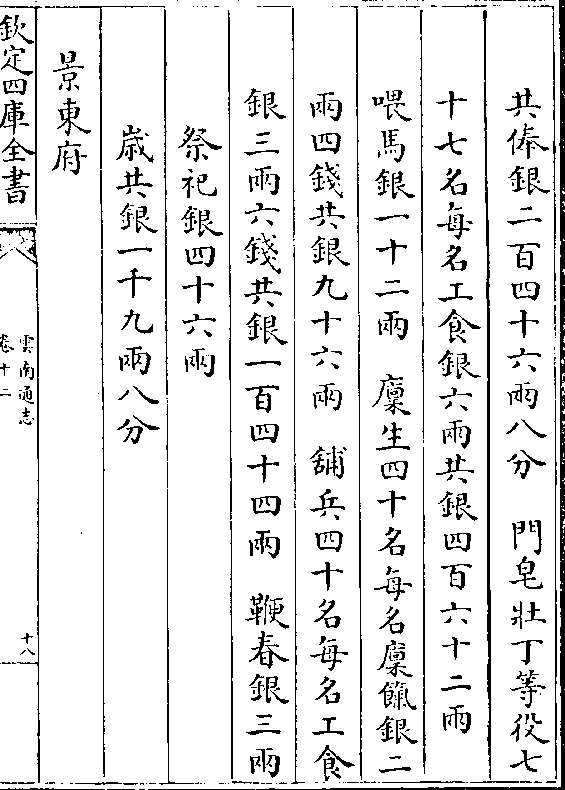 共俸銀二百四十六兩八分　門皂壯丁等役七
十七名每名工食銀六兩共銀四百六十二兩
喂馬銀一十二兩　廩生四十名每名廩餼銀二
兩四錢共銀九十六兩　舖兵四十名每名工食
銀三兩六錢共銀一百四十四兩　鞭春銀三兩
祭祀銀四十六兩
歲共銀一千九兩八分
景東府
欽定四庫全書
雲南通志
卷十二
十八